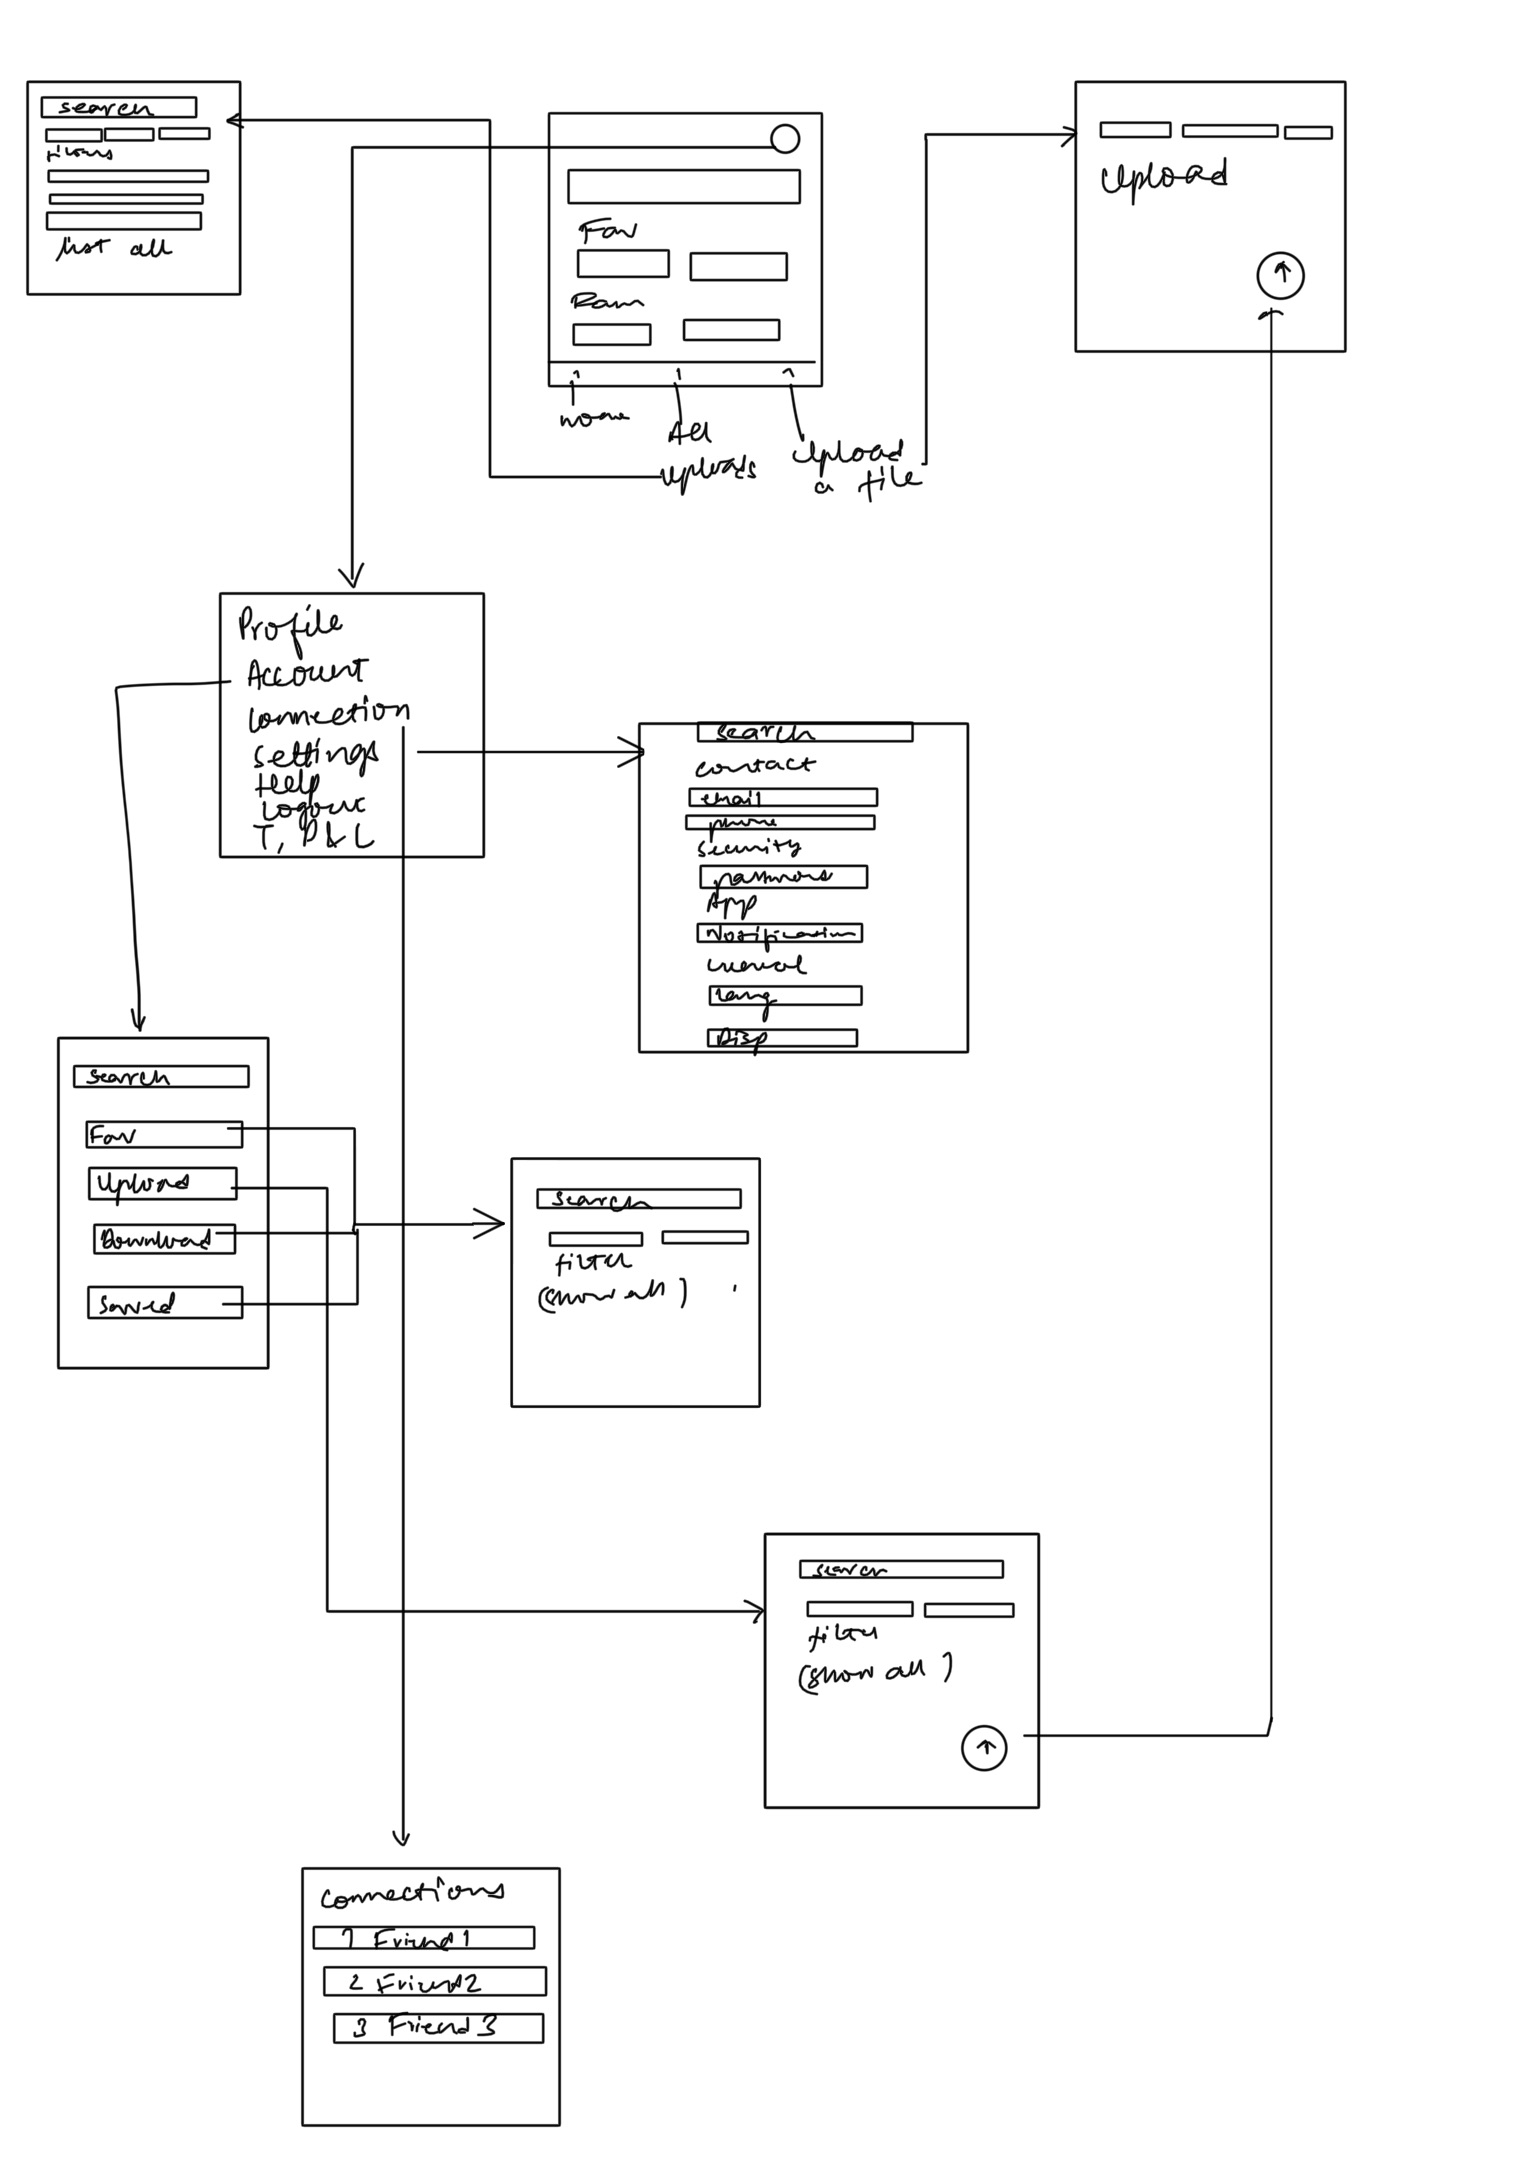 search
list all
Fav
All
uploads
upload
a file
Upload
Profile
Account
Connection
Settings
Help
Logout
T, P & C
search
contact
email
phone
security
App
Notification
Lang
Disp
search
Fav
Uploads
Download
Saved
search
filter
(show all)
search
filter
(show all)
connections
1 Friend 1
2 Friend 2
3 Friend 3